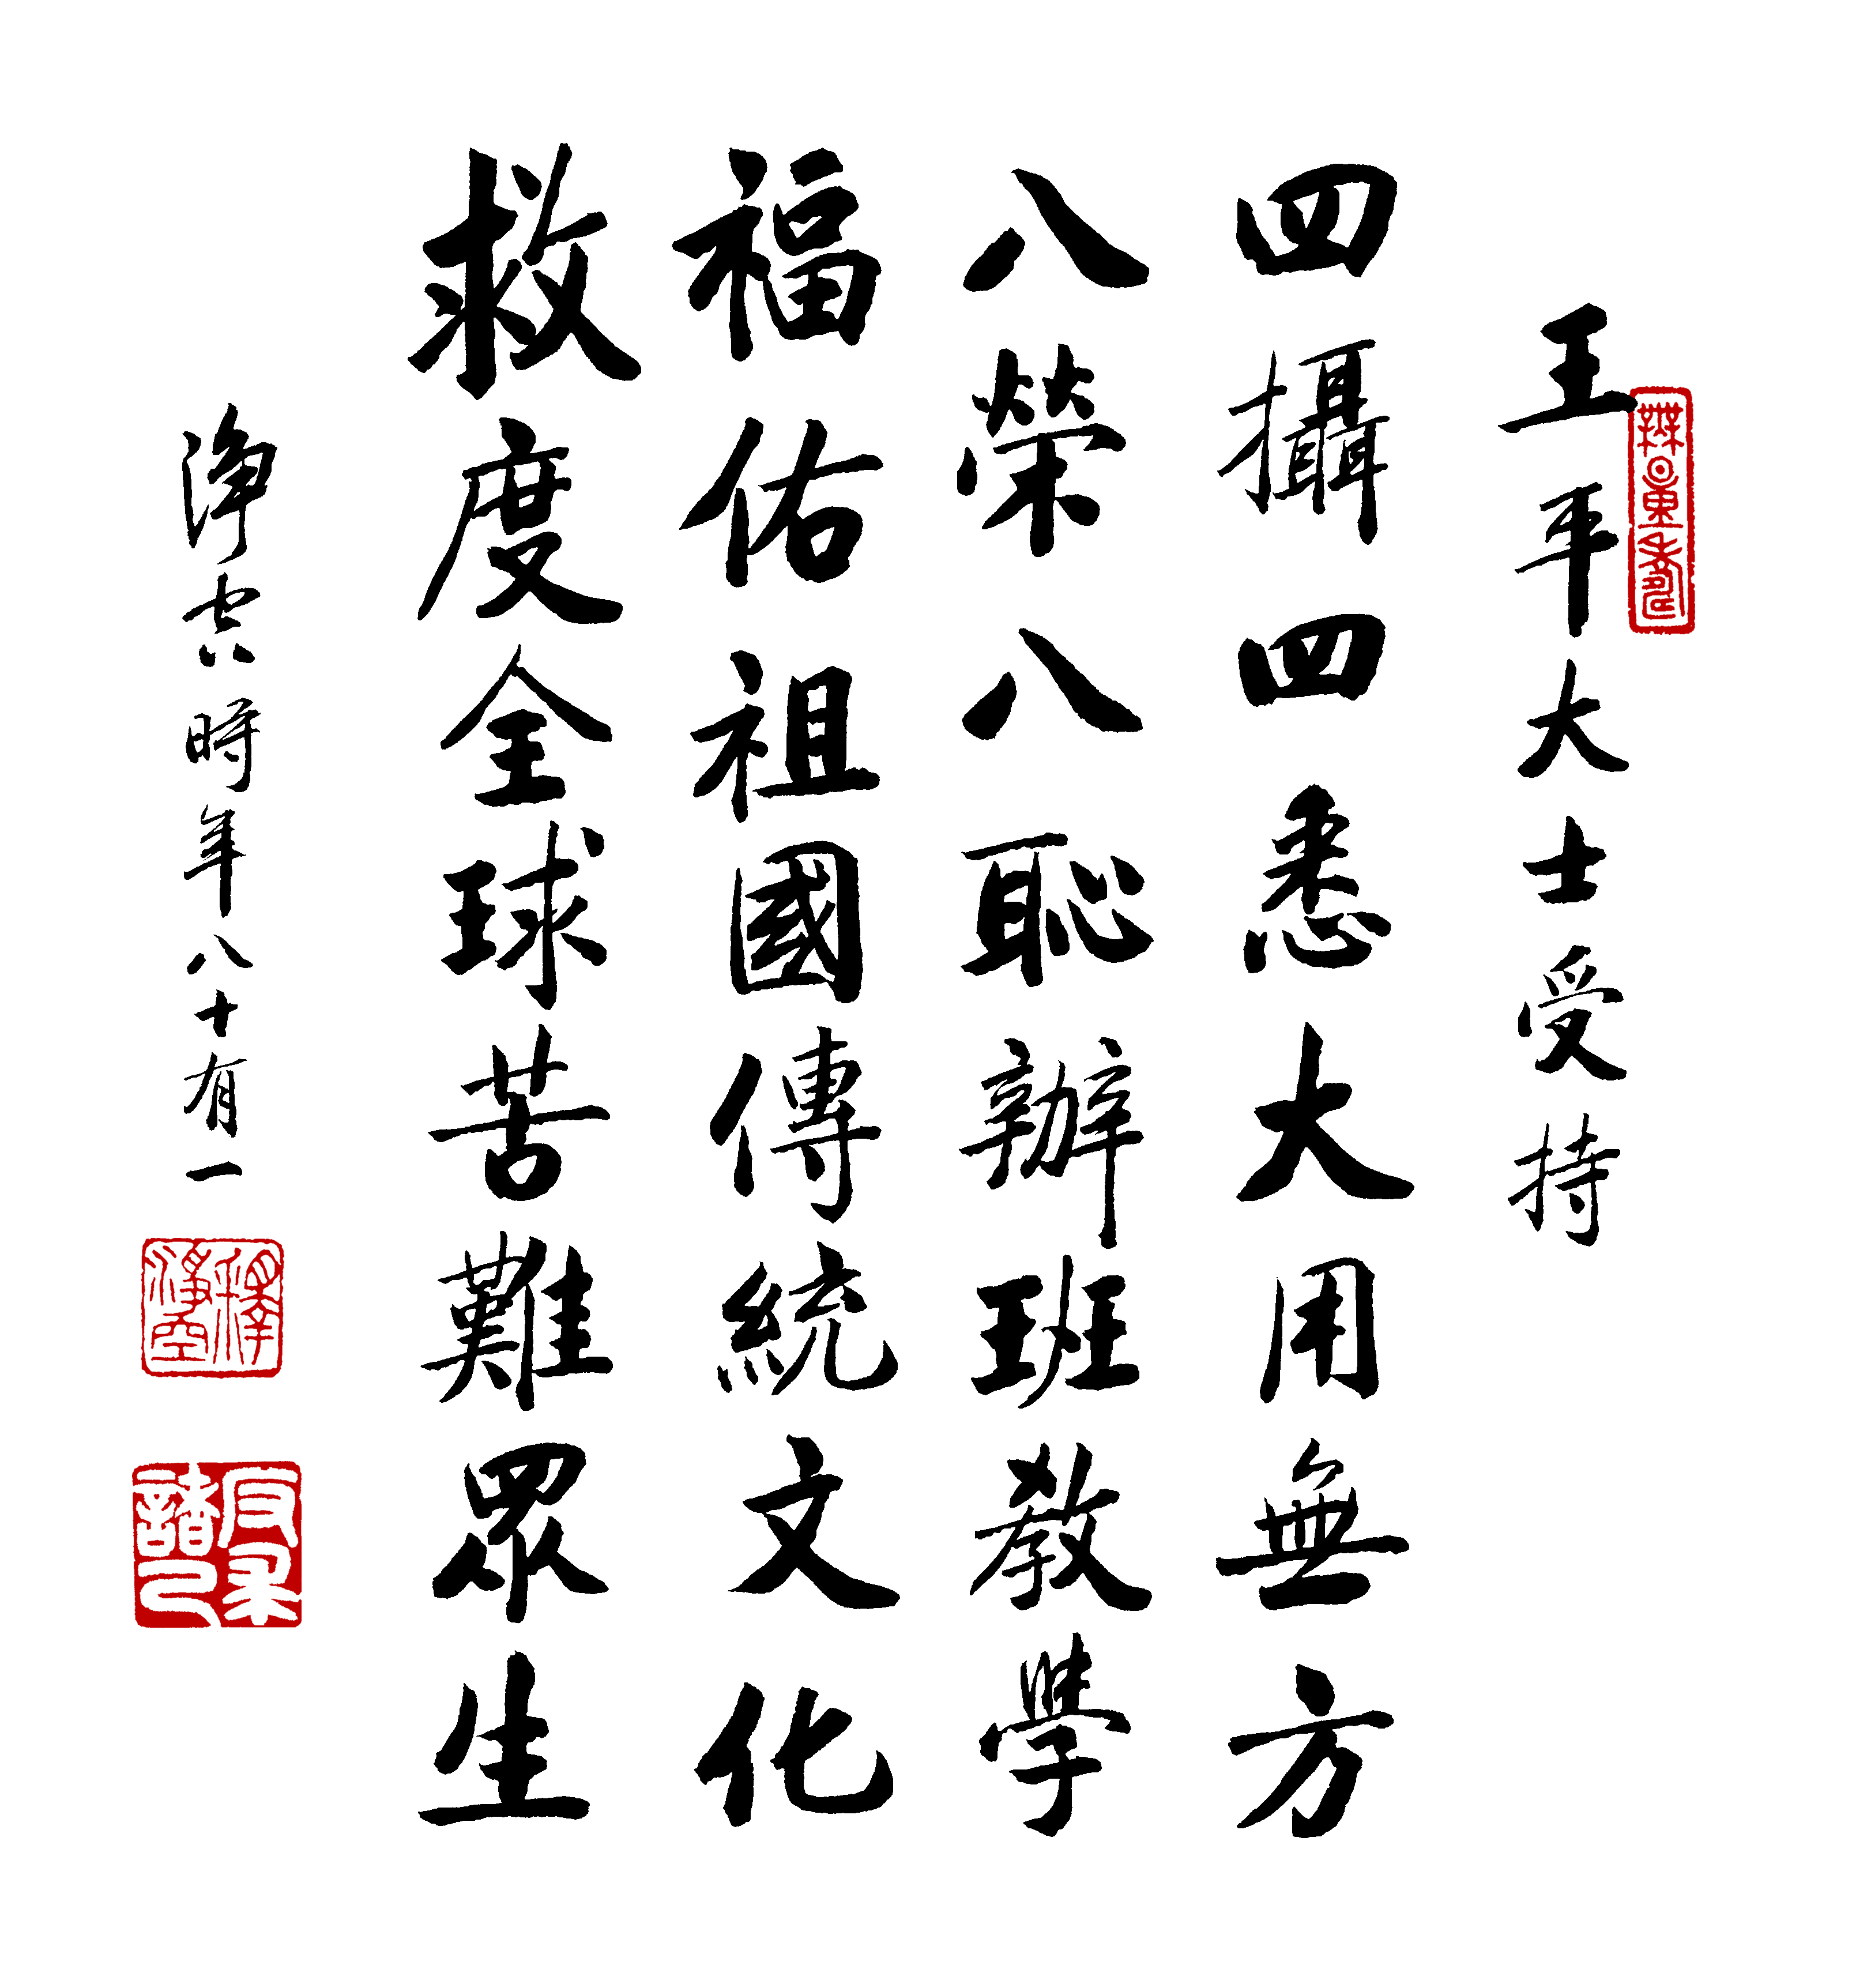 無量壽
王平大士受持
四攝四悉大用無方
八榮八恥辦班教學
福佑祖國傳統文化
救度全球苦難眾生
淨空時年八十有一
釋淨空